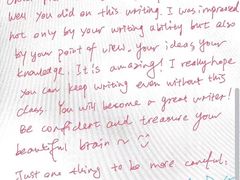 well you did on this writing. I was impressed
not only by your writing ability but also
by your point of view, your ideas your
knowledge. It is amazing! I really hope
you can keep writing even without this
class. You will become a great writer!
Be confident and treasure your
beautiful brain ~
Just one thing to be more careful: